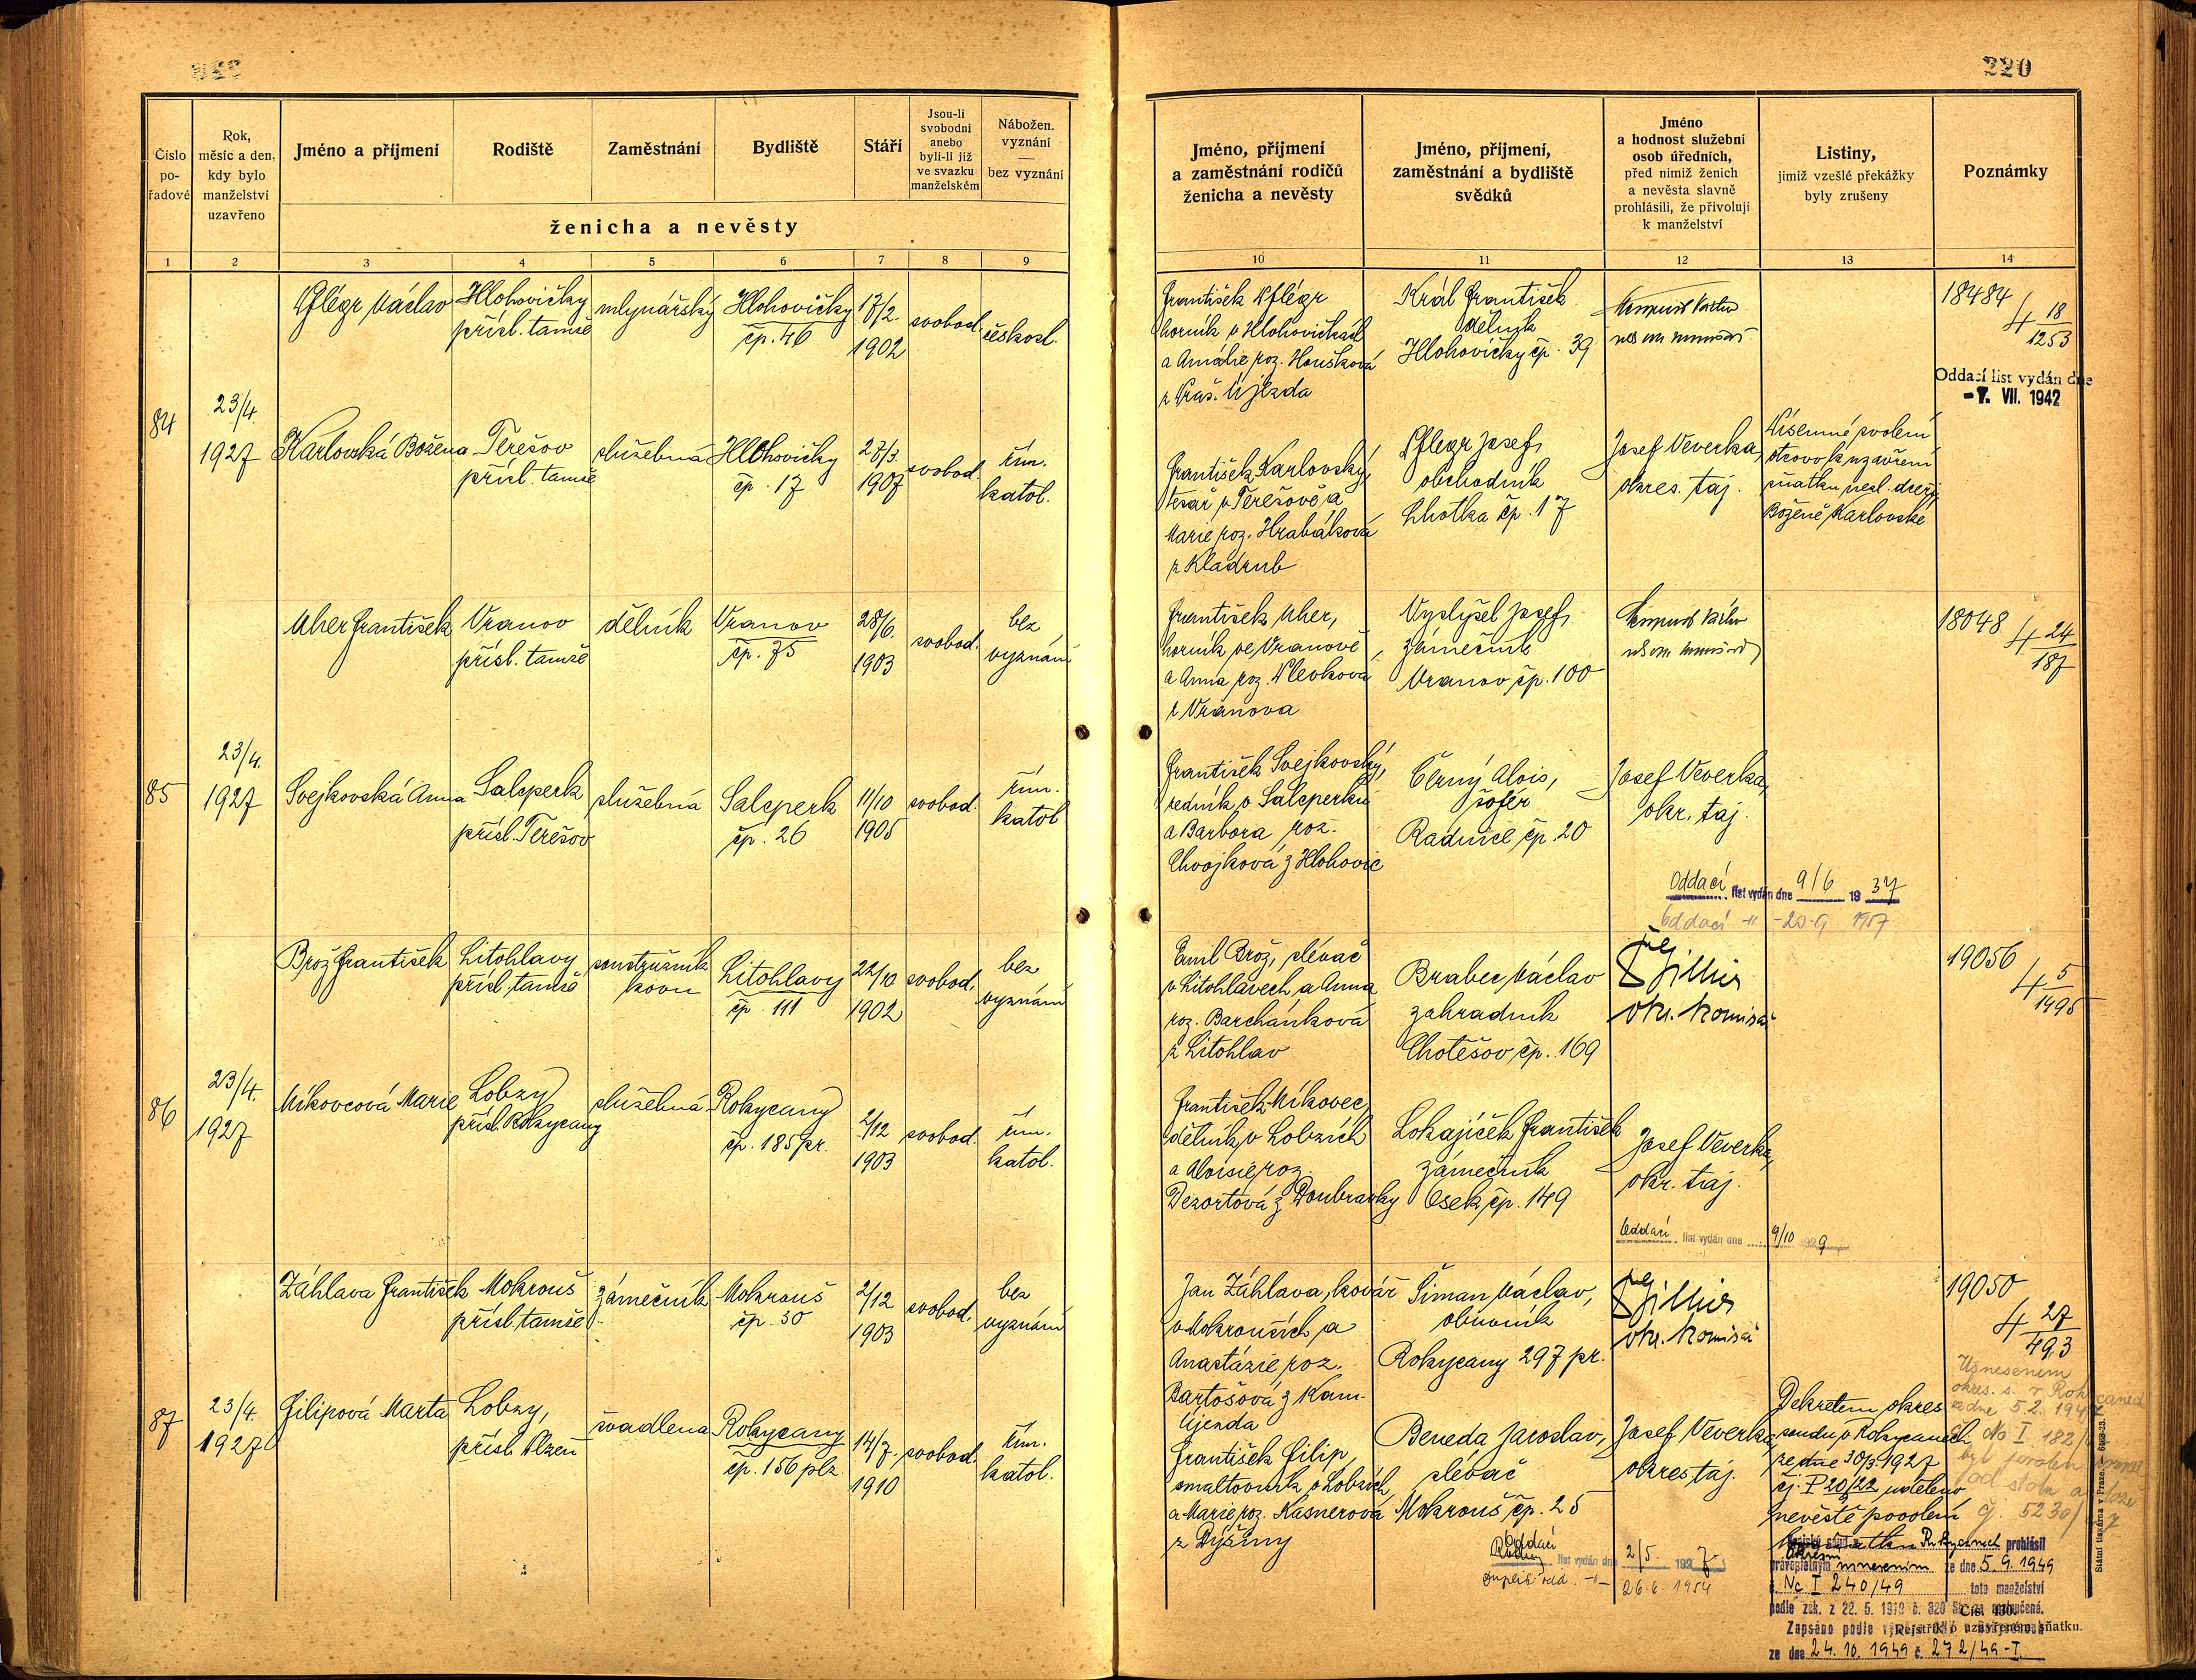 220
Číslo
po-
řadové
Rok,
měsíc a den,
kdy bylo
manželství
uzavřeno
Jméno a příjmení
Rodiště
Zaměstnání
Bydliště
Stáří
Jsou-li
svobodni
anebo
byli-li již
ve svazku
manželském
Nábožen.
vyznání
—
bez vyznání
ženicha a nevěsty
1 2 3 4 5 6 7 8 9
Pflégr Václav
Hlohovičky
přísl. tamže
mlynářský
Hlohovičky
čp. 46
17/2.
1902
svobod.
českosl.
84
23/4.
1927
Karlovská Božena
Terešov
přísl. tamže
služebná
Hlohovičky
čp. 17
1907
svobod.
řím.
katol.
Uher František
Vranov
přísl. tamže
dělník
Vranov
čp. 75
28/6.
1903
svobod.
bez
vyznání
85
23/4.
1927
Svejkovská Anna
Salcperk
přísl. Terešov
služebná
Salcperk
čp. 26
11/10
1905
svobod.
řím.
katol
Brož František
Litohlavy
přísl. tamže
soustružník
kovu
Litohlavy
čp. 111
22/10
1902
svobod.
bez
vyznání
86
23/4.
1927
Míkovcová Marie
Lobzy
přísl. Rokycany
služebná
Rokycany
čp. 185 pr.
2/12
1903
svobod.
řím.
katol.
Záhlava František
Mokrouš
přísl. tamže
zámečník
Mokrouš
čp. 30
2/12
1903
svobod.
bez
vyznání
87
23/4.
1927
Filipová Marta
Lobzy,
přísl. Plzeň
švadlena
Rokycany
čp. 156 plz.
14/7.
1910
svobod.
řím.
katol.
220
Jméno, příjmení
a zaměstnání rodičů
ženicha a nevěsty
Jméno, příjmení,
zaměstnání a bydliště
svědků
Jméno
a hodnost služební
osob úředních,
před nimiž ženich
a nevěsta slavně
prohlásili, že přivolují
k manželství
Listiny,
jimiž vzešlé překážky
byly zrušeny
Poznámky
10 11 12 13 14
František Pflégr
horník v Hlohovičkách
a Amálie roz. Houšková
z Váš. Újezda
Král František
dělník
Hlohovičky čp. 39
18484
4 18
1253
Oddací list vydán dne
VII. 1942
František Karlovský,
tesař v Terešově a
Marie roz. Hrabáková
z Kladrub
Pflegr Josef,
obchodník
Lhotka čp. 17
Josef Veverka,
okres. taj.
Písemné svolení
otcovo k uzavření
sňatku nezl. dceři
Boženě Karlovské
František Uher,
horník ve Vranově
a Anna roz.
z Vranova
Vyslyšel Josef,
zámečník
Vranov čp. 100
18048
4 24
187
František Svejkovský,
v Salcperku
a Barbora roz.
Chvojková z Hlohovic
Černý Alois,
šofér
Radnice čp. 20
Josef Veverka,
okr. taj.
Oddací list vydán dne 9/6 1937
Oddací -"-
Emil Brož, slévač
v Litohlavech a Anna
roz. Barchánková
z Litohlav
Brabec Václav
zahradník
Chotěšov čp. 169
okr. komisař
19056
4 5
1495
František Míkovec,
dělník v Lobzích
a Aloisie roz.
Dezortová z Doubravky
Lokajíček František
zámečník
Osek čp. 149
Josef Veverka,
okr. taj.
Oddací list vydán dne 9/10 1929
Jan Záhlava, kovář
v Mokrouších a
Anastázie roz.
Bartošová z Kam.
Újezda
Šiman Václav,
obuvník
Rokycany 297 pr.
okr. komisař
19050
4 27
493
František Filip,
v Lobzích
a Marie roz. Kasnerová
z Dýšiny
Beneda Jaroslav,
slévač
Mokrouš čp. 25
Josef Veverka,
okres. taj.
Dekretem okres.
soudu v Rokycanech
ze dne 30/3. 1927
čj. P 20/22 uděleno
nevěstě povolení
Usnesením
okres. s. v Rokycanech
ze dne 5.2. 194
čj. 5230/
Oddací list vydán dne 2/5. 1927
26.6. 1954
Rokycanech prohlásil
pravoplatným usnesením ze dne 5.9.1949
č. Nc I 240/49 toto manželství
podle zák. z 22. 5. 1919 č. 320 Sb. za rozloučené.
Čís. 430.
Rejstřík o uzavřeném sňatku.
ze dne 24.10.1949 č. 272/49-I.
Státní tiskárna v Praze.